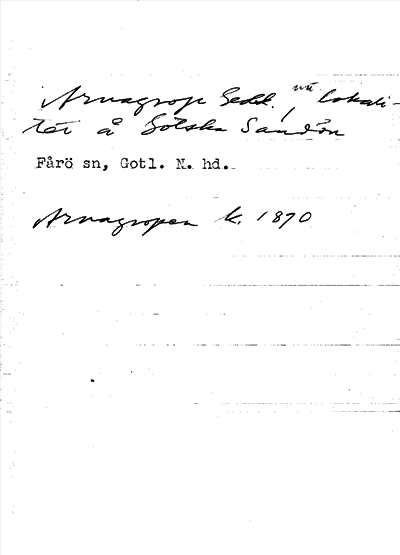 Arnagrop Sedd., nu lokali-
tet å Gotska Sandön
Fårö sn, Gotl. N. hd.
Arnagropen k. 1890